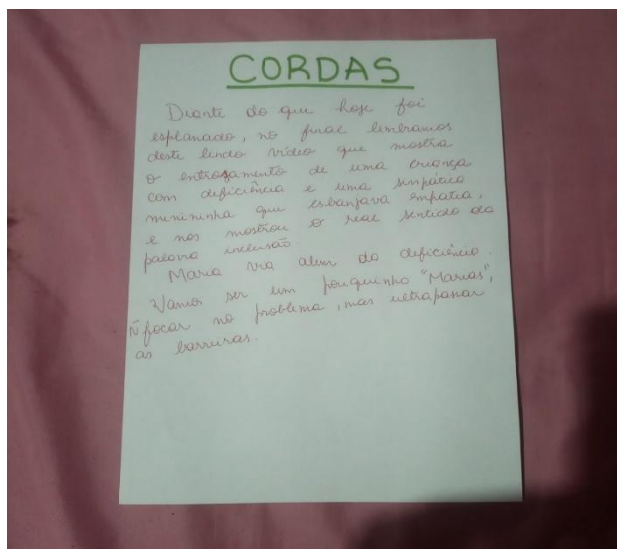 CORDAS
Diante do que hoje foi
esplanado, no final lembramos
deste lindo vídeo que mostra
o entrosamento de uma criança
com deficiência e uma simpática
menininha que esbanjava empatia,
e nos mostrou o real sentido da
palavra inclusão.
Maria via alem da deficiência.
Vamos ser um pouquinho "Marias",
ñ focar no problema, mas ultrapassar
as barreiras.